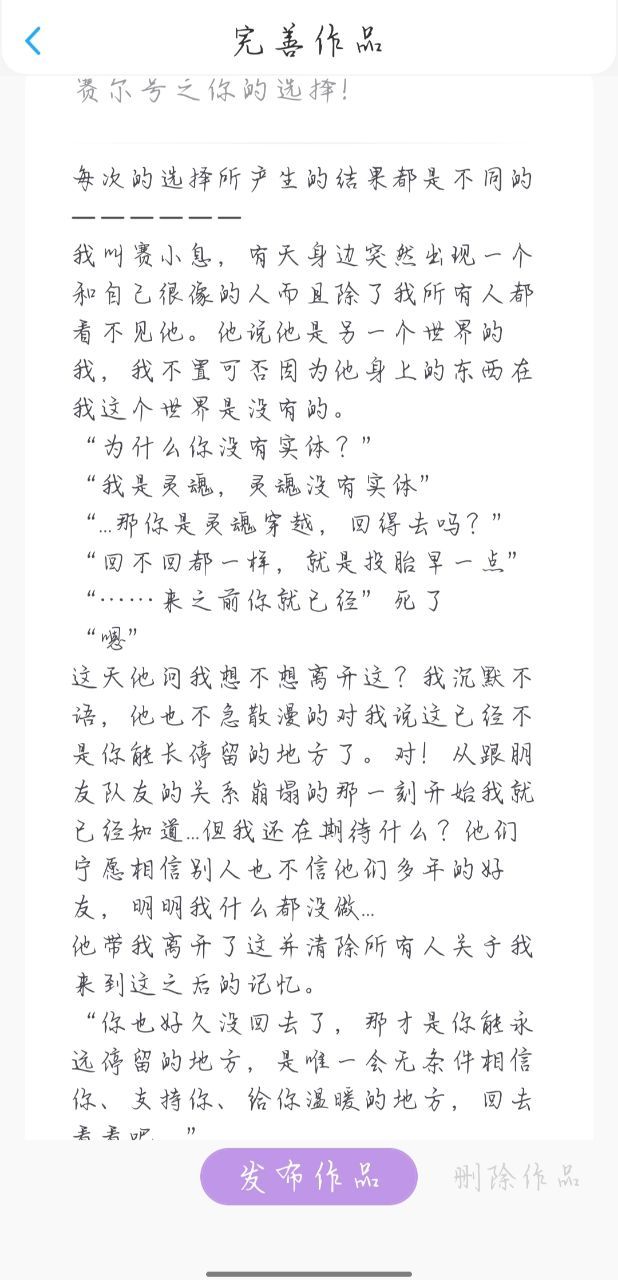 完善作品
赛尔号之你的选择！
每次的选择所产生的结果都是不同的
——————
我叫赛小息，有天身边突然出现一个
和自己很像的人而且除了我所有人都
看不见他。他说他是另一个世界的
我，我不置可否因为他身上的东西在
我这个世界是没有的。
“为什么你没有实体？”
“我是灵魂，灵魂没有实体”
“…那你是灵魂穿越，回得去吗？”
“回不回都一样，就是投胎早一点”
“……来之前你就已经”死了
“嗯”
这天他问我想不想离开这？我沉默不
语，他也不急散漫的对我说这已经不
是你能长停留的地方了。对！从跟朋
友队友的关系崩塌的那一刻开始我就
已经知道…但我还在期待什么？他们
宁愿相信别人也不信他们多年的好
友，明明我什么都没做…
他带我离开了这并清除所有人关于我
来到这之后的记忆。
“你也好久没回去了，那才是你能永
远停留的地方，是唯一会无条件相信
你、支持你、给你温暖的地方，回去
看看吧。”
发布作品
删除作品